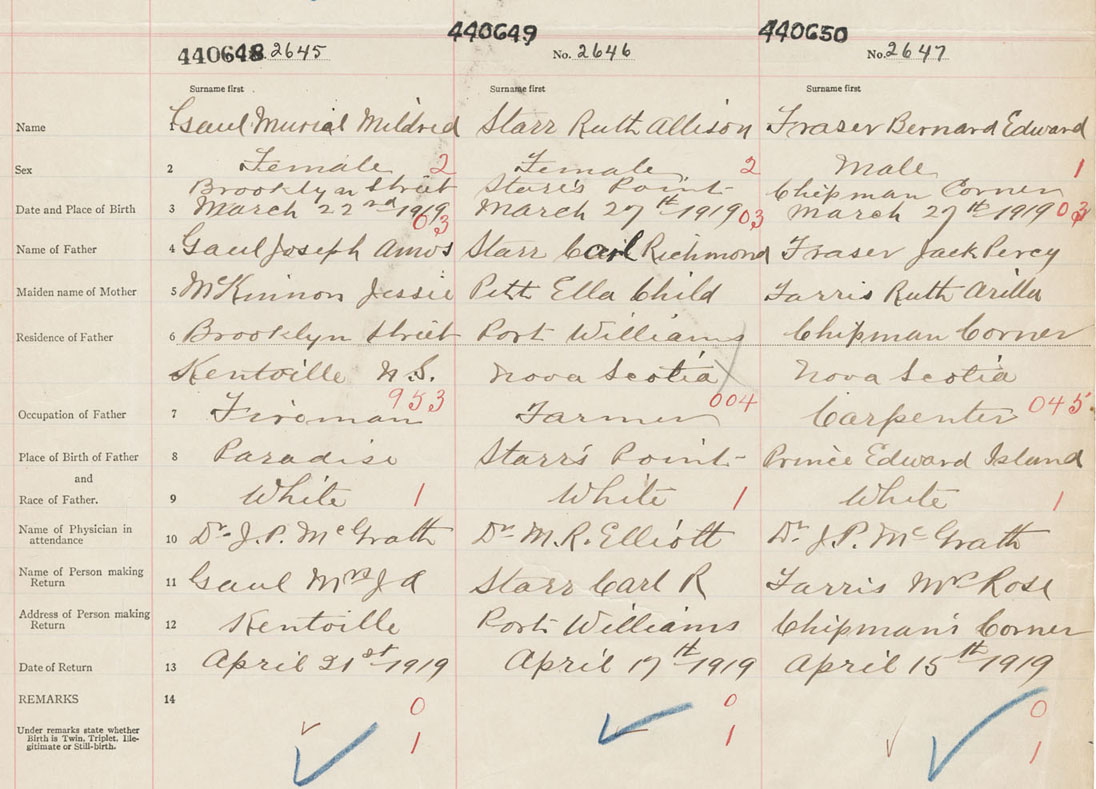 440648 2645 440649 No. 2646 440650 No. 2647
Surname first Surname first Surname first
Name 1 Gaul Muriel Mildred Starr Ruth Allison Fraser Bernard Edward
Sex 2 Female 2 Female 2 Male 1
Brooklyn Street Starr's Point Chipman Corner
Date and Place of Birth 3 March 22nd 1919 03 March 27th 1919 03 March 27th 1919 03
Name of Father 4 Gaul Joseph Amos Starr Carl Richmond Fraser Jack Percy
Maiden name of Mother 5 McKinnon Jessie Pett Ella Child Farris Ruth Arilla
Residence of Father 6 Brooklyn Street Port Williams Chipman Corner
Kentville N.S. Nova Scotia Nova Scotia
953 004 045
Occupation of Father 7 Fireman Farmer Carpenter
Place of Birth of Father 8 Paradise Starr's Point Prince Edward Island
and
Race of Father. 9 White 1 White 1 White 1
Name of Physician in
attendance 10 Dr. J.P. McGrath Dr M.R. Elliott Dr. J.P. McGrath
Name of Person making
Return 11 Gaul Mrs J A Starr Carl R Farris Rose
Address of Person making
Return 12 Kentville Port Williams Chipman's Corner
Date of Return 13 April 21st 1919 April 17th 1919 April 15th 1919
REMARKS 14 0 0 0
Under remarks state whether
Birth is Twin, Triplet, Ille-
gitimate or Still-birth. 1 1 1